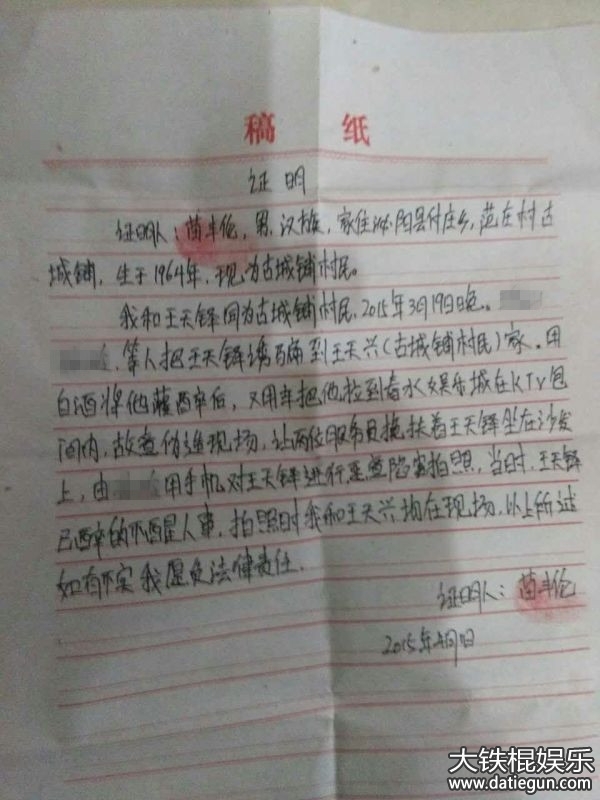 稿 纸
证 明
证明人：苗丰伦，男，汉族，家住泌阳县付庄乡，范庄村古
城铺，生于1964年，现为古城铺村民。
我和王天铎同为古城铺村民，2015年3月19日晚。
等人把王天铎诱骗到王天兴（古城铺村民）家。用
白酒将他灌醉后，又用车把他拉到春水娱乐城在KTV包
间内，故意伪造现场，让两位服务员搀扶着王天铎坐在沙发
上，由 用手机对王天铎进行恶意陷害拍照，当时，王天铎
已醉的不醒人事，拍照时我和王天兴均在现场，以上所述
如有不实我愿负法律责任.
证明人：苗丰伦
2015年4月1日
大铁棍娱乐
www.datiegun.com